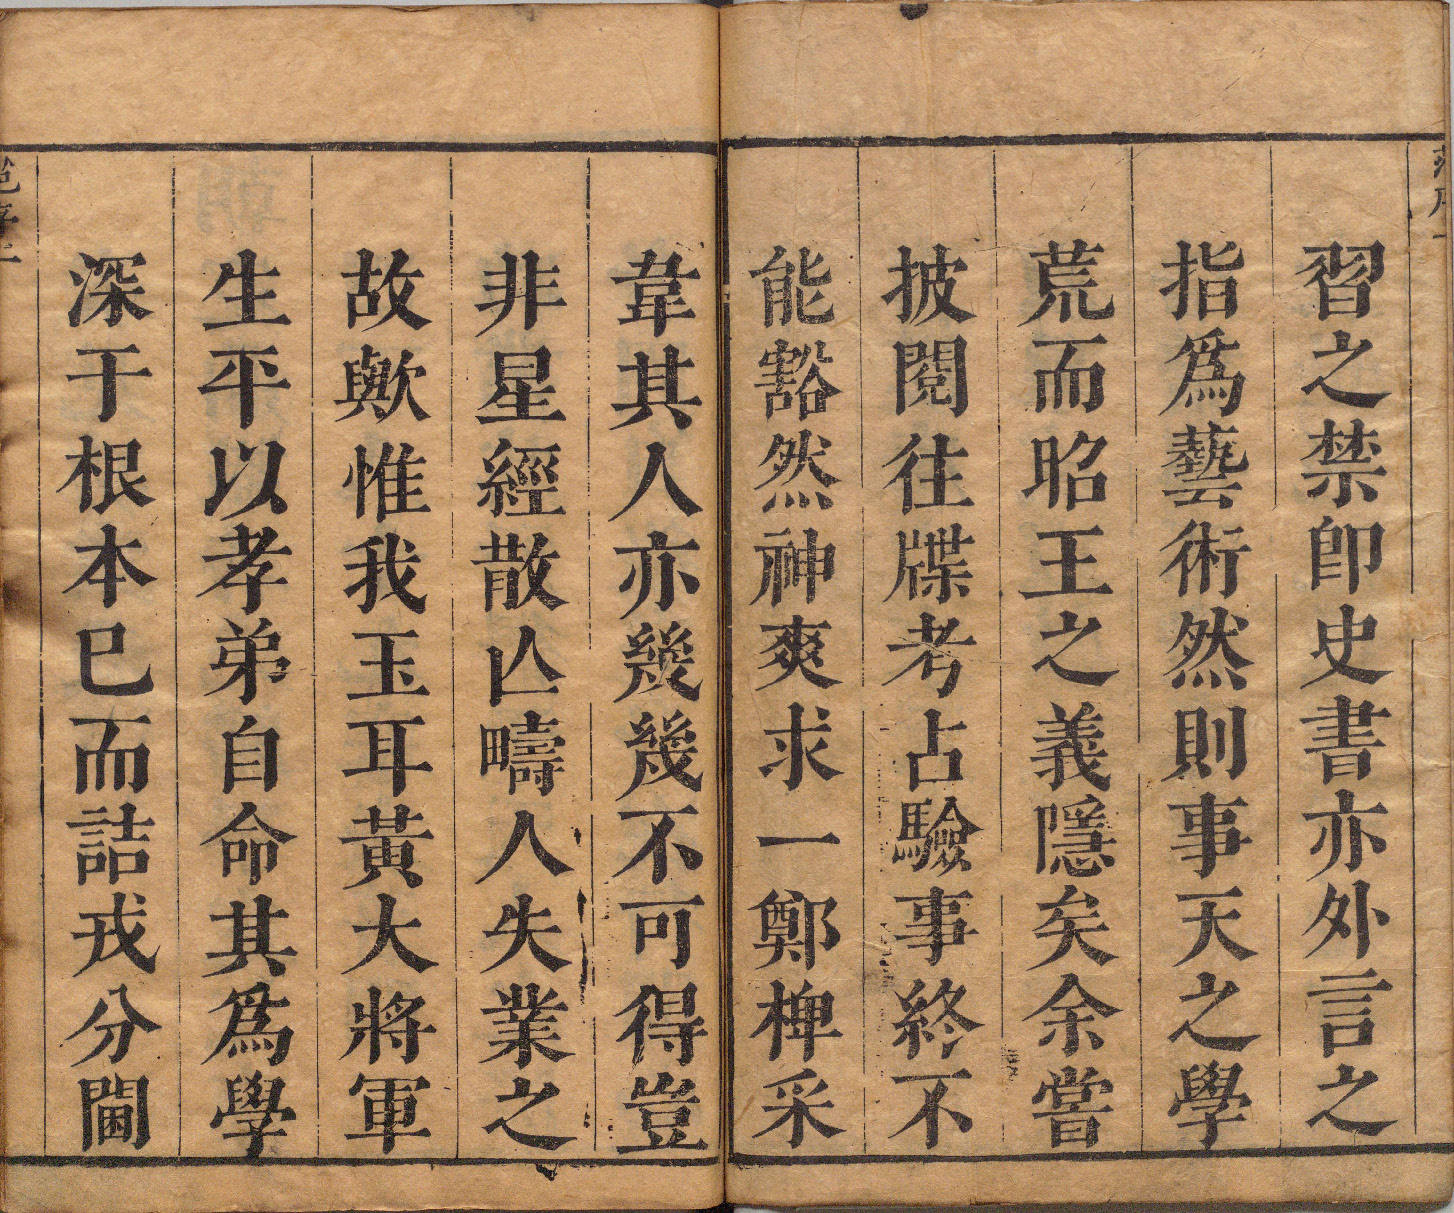 習之禁卽史書亦外言之
指爲藝術然則事天之學
荒而昭王之義隱矣余嘗
披閱往牒考占驗事終不
能豁然神爽求一鄭椑采
韋其人亦幾幾不可得豈
非星經散亾疇人失業之
故歟惟我玉耳黃大將軍
生平以孝弟自命其爲學
深于根本巳而詰戎分閫